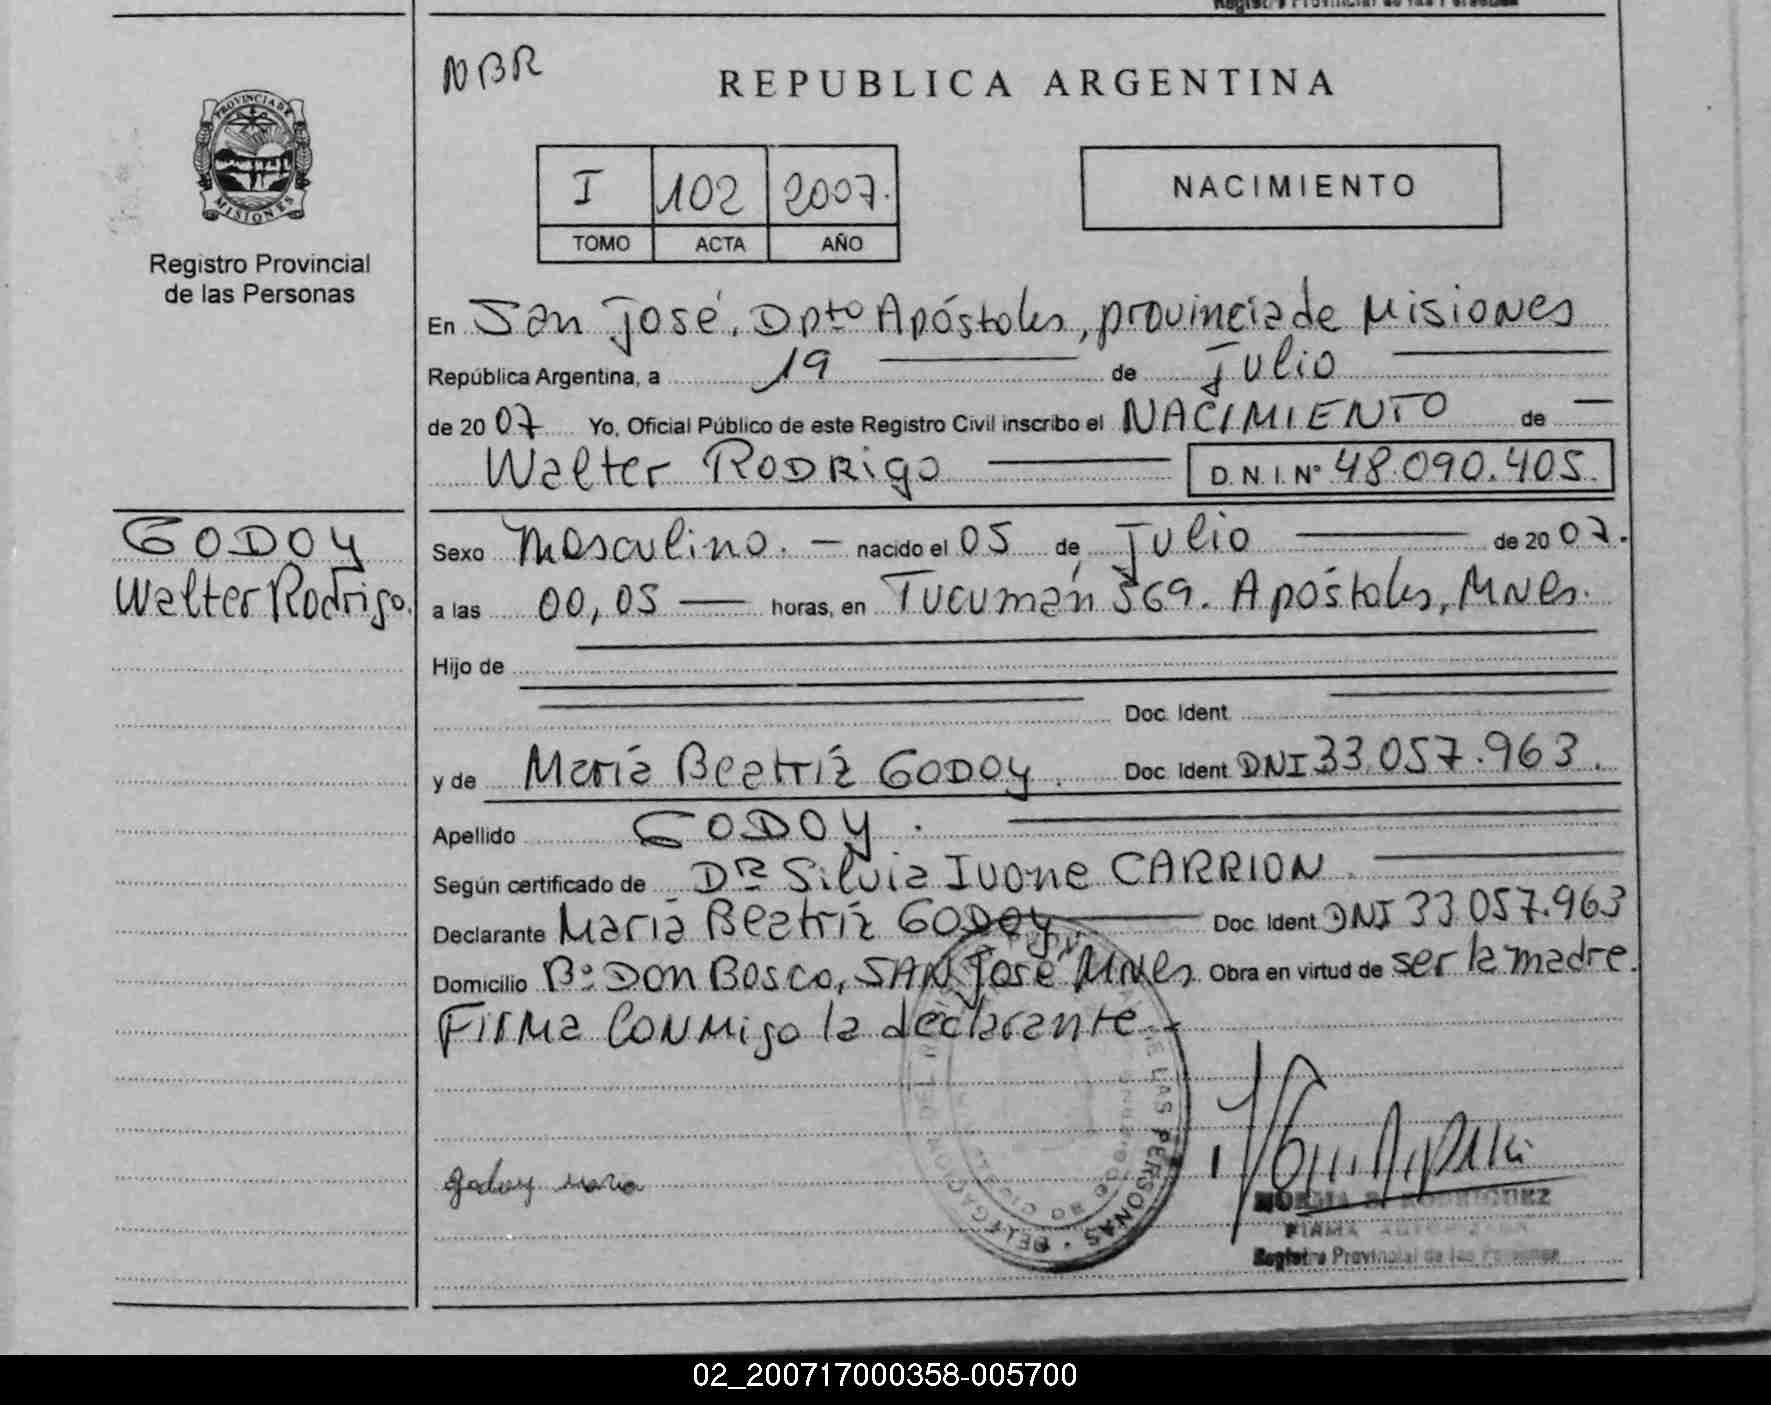 Registro Provincial de las Personas
NBR
REPUBLICA ARGENTINA
PROVINCIA DE
MISIONES
Registro Provincial
de las Personas
I 102 2007.
TOMO ACTA AÑO
NACIMIENTO
En San José, Dpto Apóstoles, provincia de Misiones
República Argentina, a 19 de Julio
de 2007 Yo, Oficial Público de este Registro Civil inscribo el NACIMIENTO de
Walter RODRIGO D.N.I. Nº 48.090.405.
GODOY
Walter Rodrigo.
Sexo Masculino. nacido el 05 de Julio de 2007.
a las 00,05 horas, en Tucumán 569. Apóstoles, Mnes.
Hijo de
Doc. Ident.
y de María Beatríz GODOY. Doc. Ident DNI 33.057.963.
Apellido GODOY.
Según certificado de Dra Silvia Ivone CARRION.
Declarante María Beatríz GODOY Doc. Ident DNI 33.057.963
Domicilio Bº DON BOSCO, SAN José Mnes. Obra en virtud de ser la madre.
Firma conmigo la declarante.
DE LAS PERSONAS · DELEGACION
godoy maria
NORMA B. RODRIGUEZ
FIRMA AUTORIZADA
Registro Provincial de las Personas
02_200717000358-005700